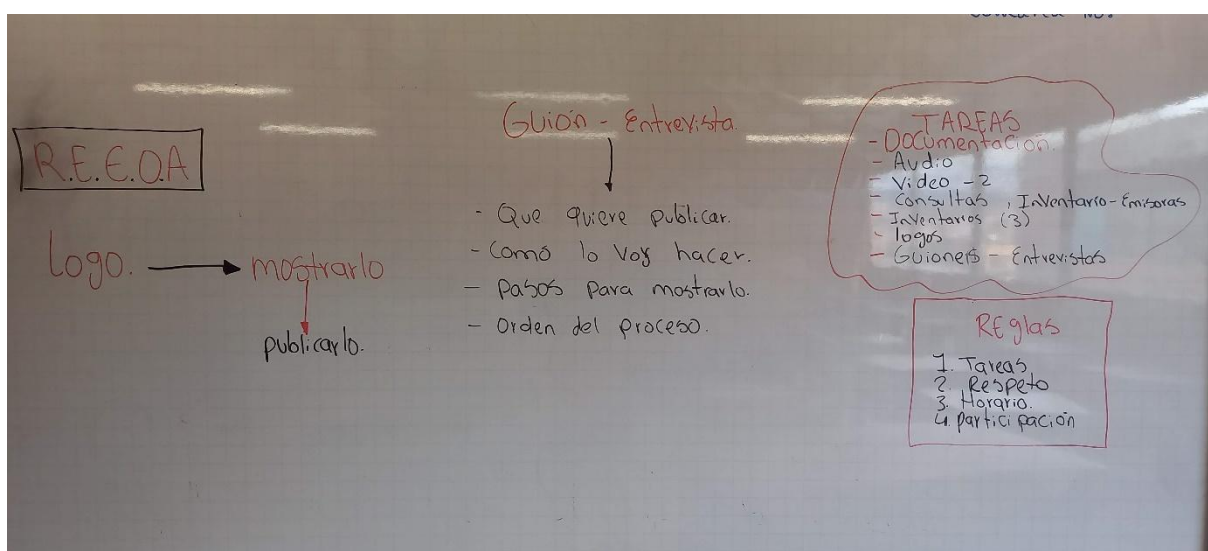 R.E.E.O.A
Logo. mostrarlo
publicarlo.
Guión - Entrevista.
- Que quiere publicar.
- Como lo voy hacer.
- pasos para mostrarlo.
- Orden del proceso.
TAREAS
- Documentación.
- Audio
- Video - 2
- Consultas, Inventario - Emisoras
- Inventarios (3)
- logos
- Guiones - Entrevistas
REglas
1. Tareas
2. Respeto
3. Horario.
4. participación